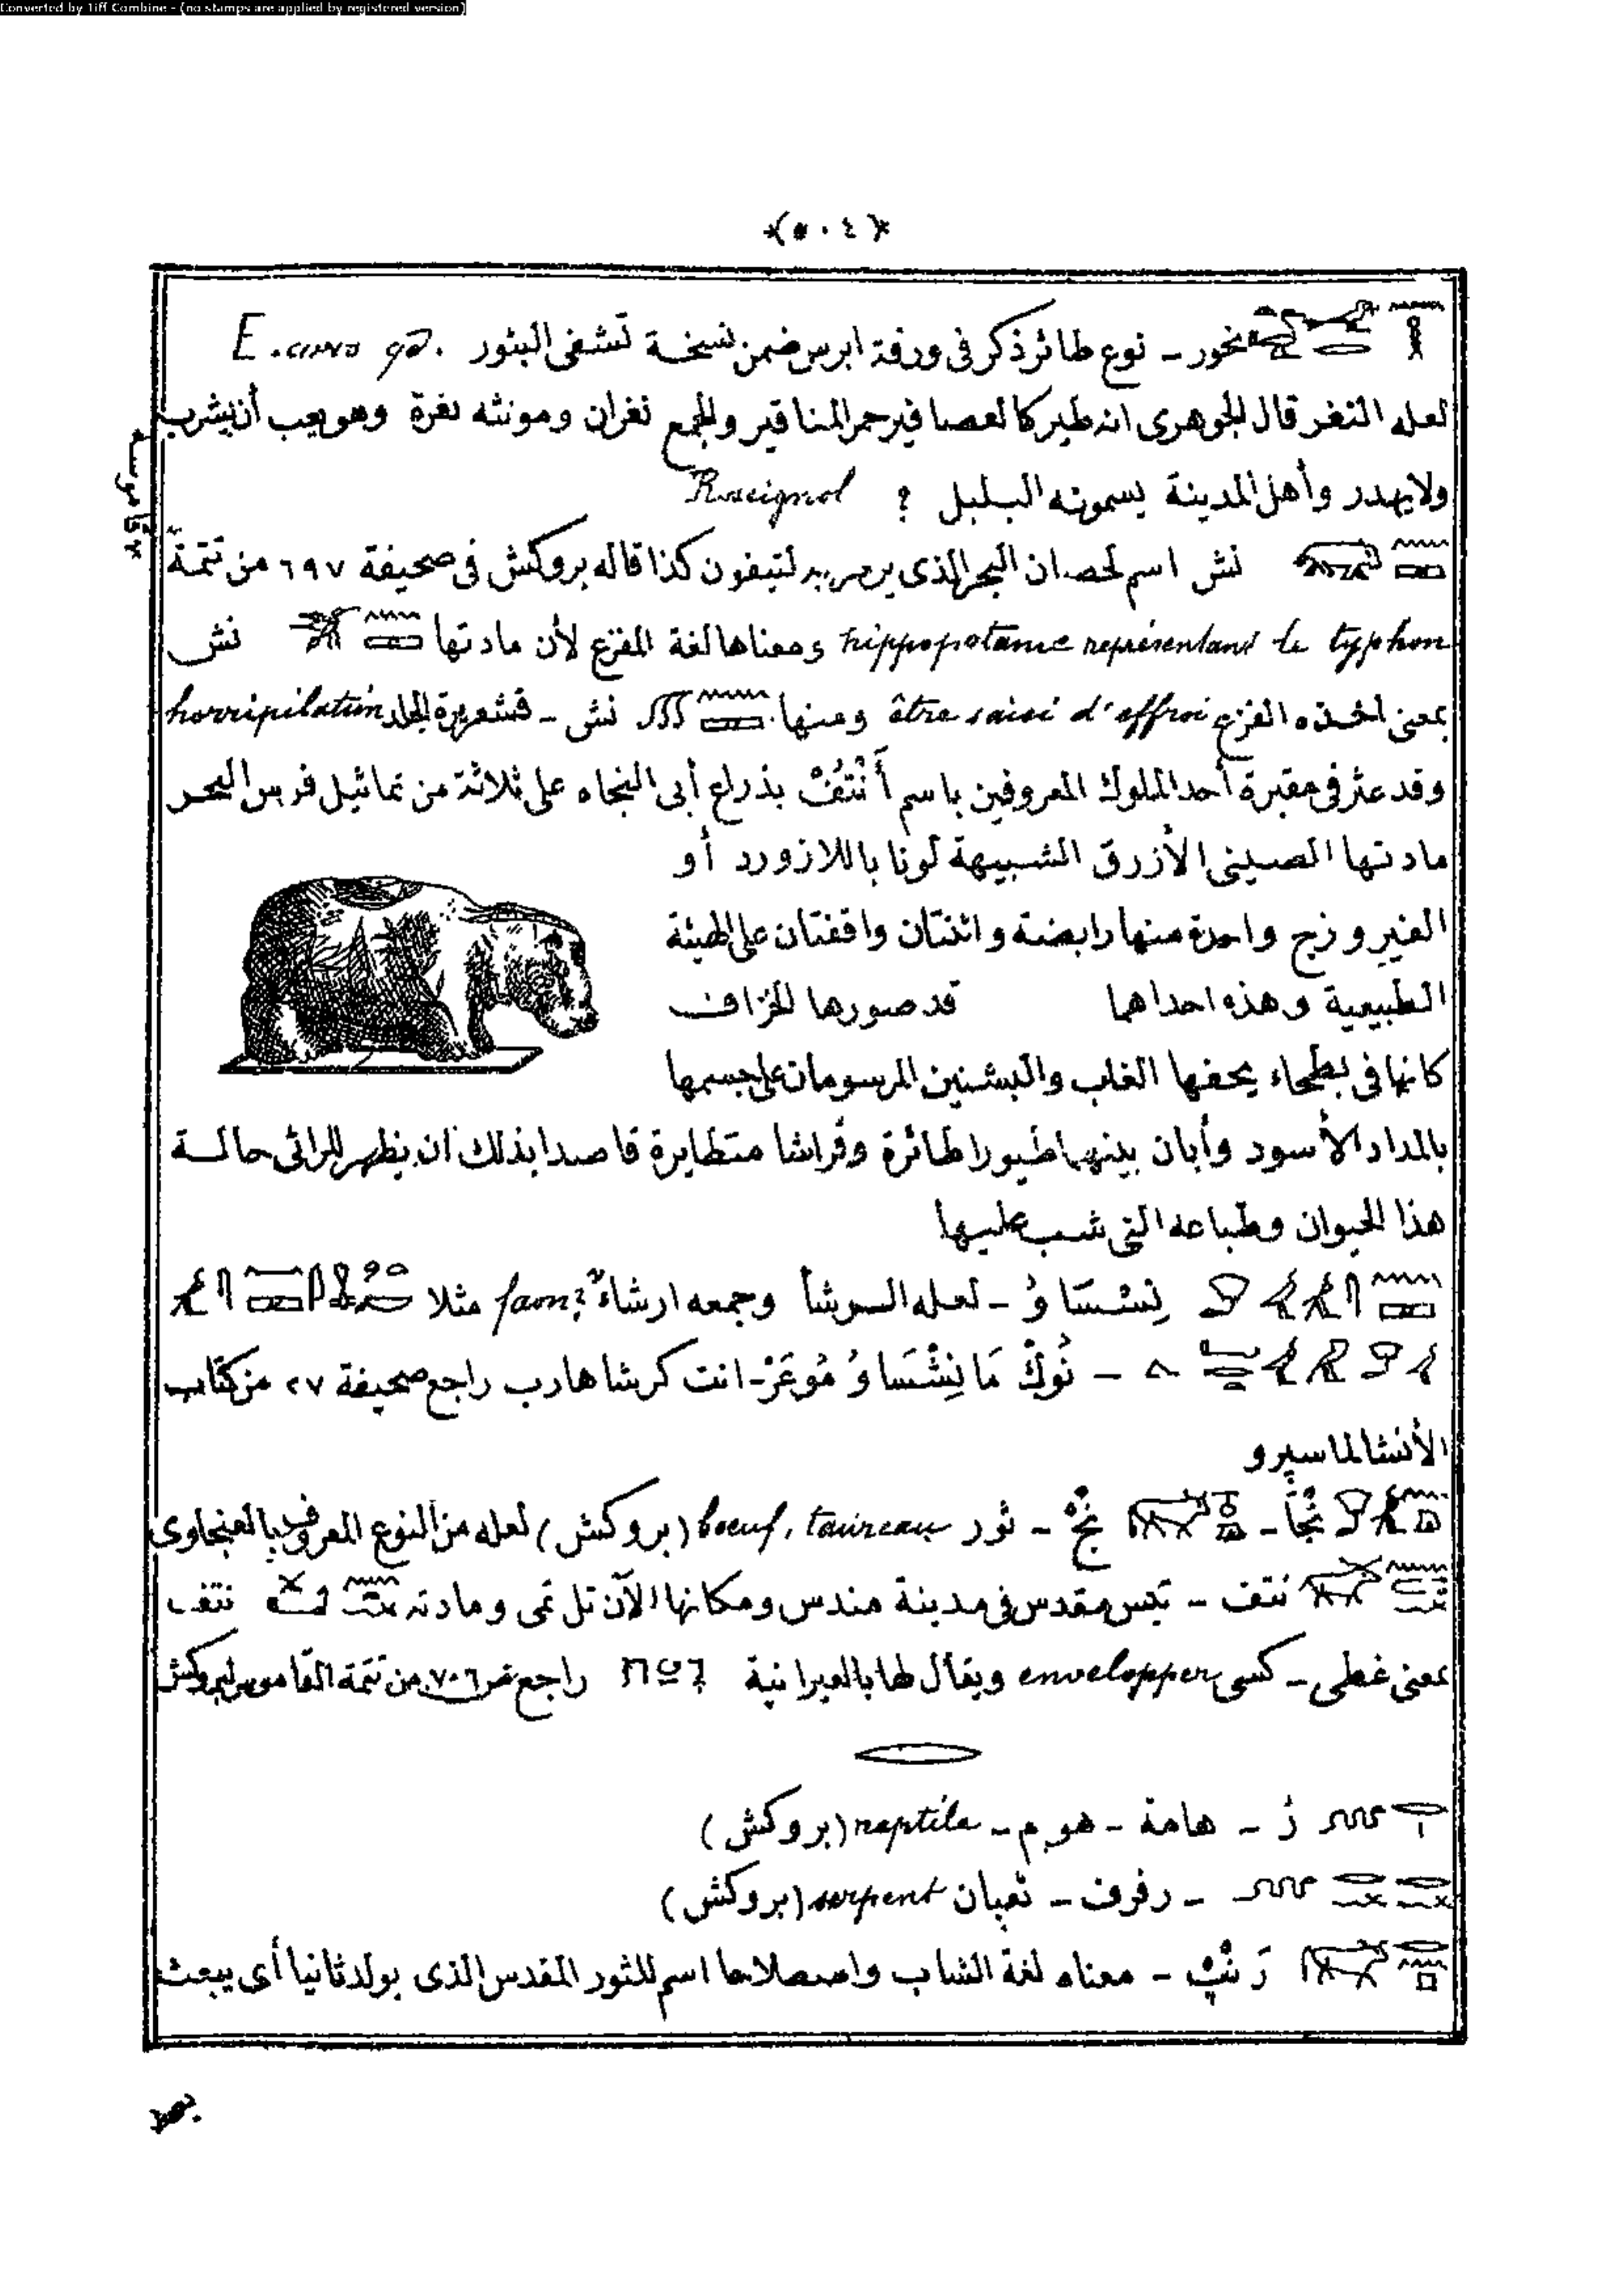 Converted by Tiff Combine - (no stamps are applied by registered version)
﴿٥٠٤﴾
نخور - نوع طائر ذكر فى ورقة ابرس ضمن نسخة تشفى البثور E.
لعله النغر قال الجوهرى انه طير كالعصافير حمر المناقير والجمع نغران ومونثه نغرة وهو يعب أن يشرب
ولا يهدر وأهل المدينة يسمونه البلبل ? Rossignol
نش اسم لحصان البحر الذى يرمز به لتيفون كذا قاله بروكش فى صحيفة ٦٩٧ من تتمة
hippopotame représentant le typhon ومعناها لغة المفزع لأن مادتها نش
بمعنى اخذه الفزع être saisi d'effroi ومنها نش - قشعريرة الجلد horripilation
وقد عثر فى مقبرة أحد الملوك المعروفين باسم أَنْتُفْ بذراع أبى النجاه على ثلاثة من تماثيل فرس البحر
مادتها الصينى الأزرق الشبيهة لونا باللازورد أو
الفيروزج واحدة منها رابضة واثنتان واقفتان على الهيئة
الطبيعية وهذه احداهما قد صورها الخزاف
كانها فى بطحاء يحفها الغاب والبشنين المرسومان على جسمها
بالمداد الأسود وأبان بينهما طيورا طائرة وفراشا متطايرة قاصدا بذلك ان يظهر للرائى حالة
هذا الحيوان وطباعه التى شب عليها
نِشْسَاوُ - لعله الرشأ وجمعه ارشاء faon? مثلا
- نُوكْ مَا نِشْسَاوُ مُوعَرْ - انت كرشا هارب راجع صحيفة ٢٧ من كتاب
الأنشا لماسپرو
نُجَا - نِجْ - ثور boeuf, taureau (بروكش) لعله من النوع المعروف بالعنجاوى
نتف - تيس مقدس فى مدينة مندس ومكانها الآن تل تمى ومادته نتف
بمعنى غطى - كسى envelopper ويقال لها بالعبرانية راجع ٧٠٦ من تتمة القاموس لبروكش
رُ - هامة - هوام - reptile (بروكش)
- رفرف - ثعبان serpent (بروكش)
رَنْپ - معناه لغة الشاب واصطلاحا اسم للثور المقدس الذى يولد ثانيا أى يبعث